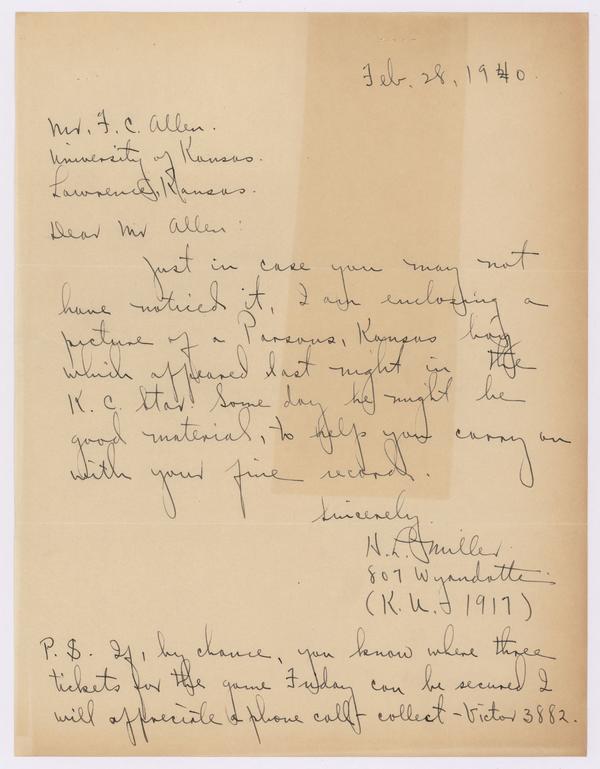 Feb. 28, 1940.
Mr. F. C. Allen.
University of Kansas.
Lawrence, Kansas.
Dear Mr Allen:
Just in case you may not
have noticed it, I am enclosing a
picture of a Parsons, Kansas boy
which appeared last night in the
K. C. Star. Some day he might be
good material, to help you carry on
with your fine record.
Sincerely,
H. L. Miller.
807 Wyandotte
(K. U. 1917)
P. S. If, by chance, you know where three
tickets for the game Friday can be secured I
will appreciate a phone call collect - Victor 3882.